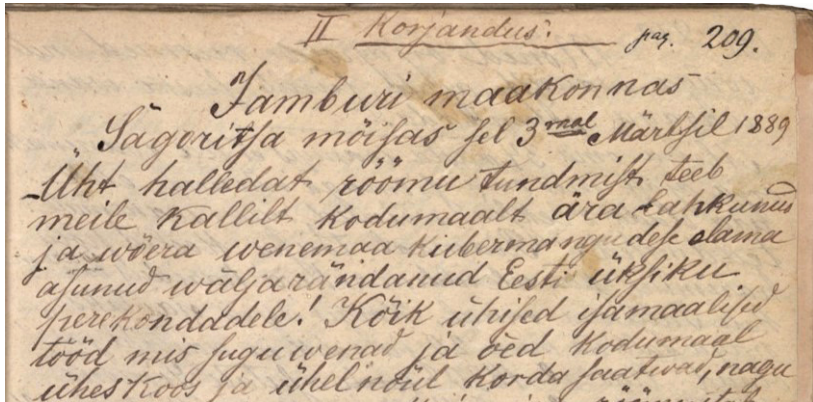 II Korjandus: pag. 209.
Jamburi maakonnas
Sägoritsa mõisas sel 3mal Märtsil 1889
Üht halledat röömu tundmist teeb
meile kallilt kodumaalt ära lahkunud
ja wõera wenemaa kubermangudese elama
asunud wäljarändanud Eesti üksiku
perekondadele! Kõik ühised isamaalised
tööd mis suguwenad ja õed kodumaal
üheskoos ja ühel nõul korda saatwad, nagu